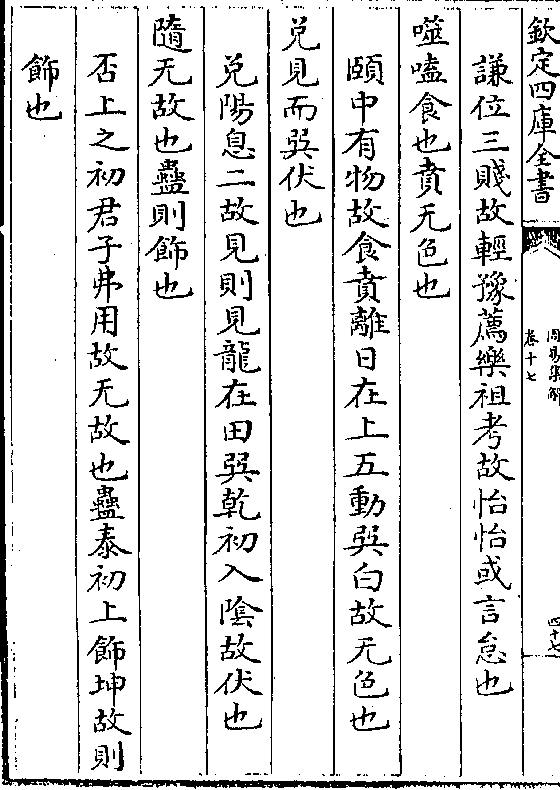 欽定四庫全書
周易集解
卷十七
四十七
謙位三賤故輕豫薦樂祖考故怡怡或言怠也
噬嗑食也賁无色也
頤中有物故食賁離日在上五動巽白故无色也
兌見而巽伏也
兌陽息二故見則見龍在田巽乾初入陰故伏也
隨无故也蠱則飾也
否上之初君子弗用故无故也蠱泰初上飾坤故則
飾也